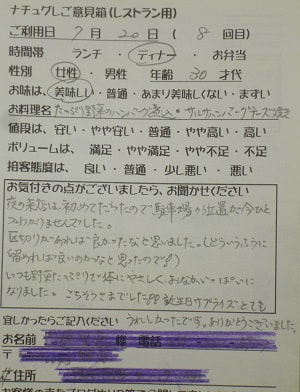 ナチュグレご意見箱(レストラン用)
ご利用日 7月20日(8回目)
時間帯 ランチ・ディナー・お弁当
性別 女性・男性 年齢30才代
お味は、美味しい・普通・あまり美味しくない・まずい
お料理名 たっぷり野菜のハンバーグ煮込 サルサハンバーグチーズ
値段は、安い・やや安い・普通・やや高い・高い
ボリュームは、満足・やや満足・やや不足・不足
接客態度は、良い・普通・少し悪い・悪い
お気付きの点がございましたら、お聞かせください
夜の来店は、初めてだったので駐車場の位置が今ひと
つわかりませんでした。
区切りがあれば良かったなと思いました。(どういうふうに
留めれば良いのかなと思ったので)
いつも野菜たっぷりで体にやさしく、おなかいっぱいに
なりました。ごちそうさまでした 誕生日サプライズとても
宜しかったらご記入ください うれしかったです。ありがとうございました。
お名前 様 電話
〒
ご住所